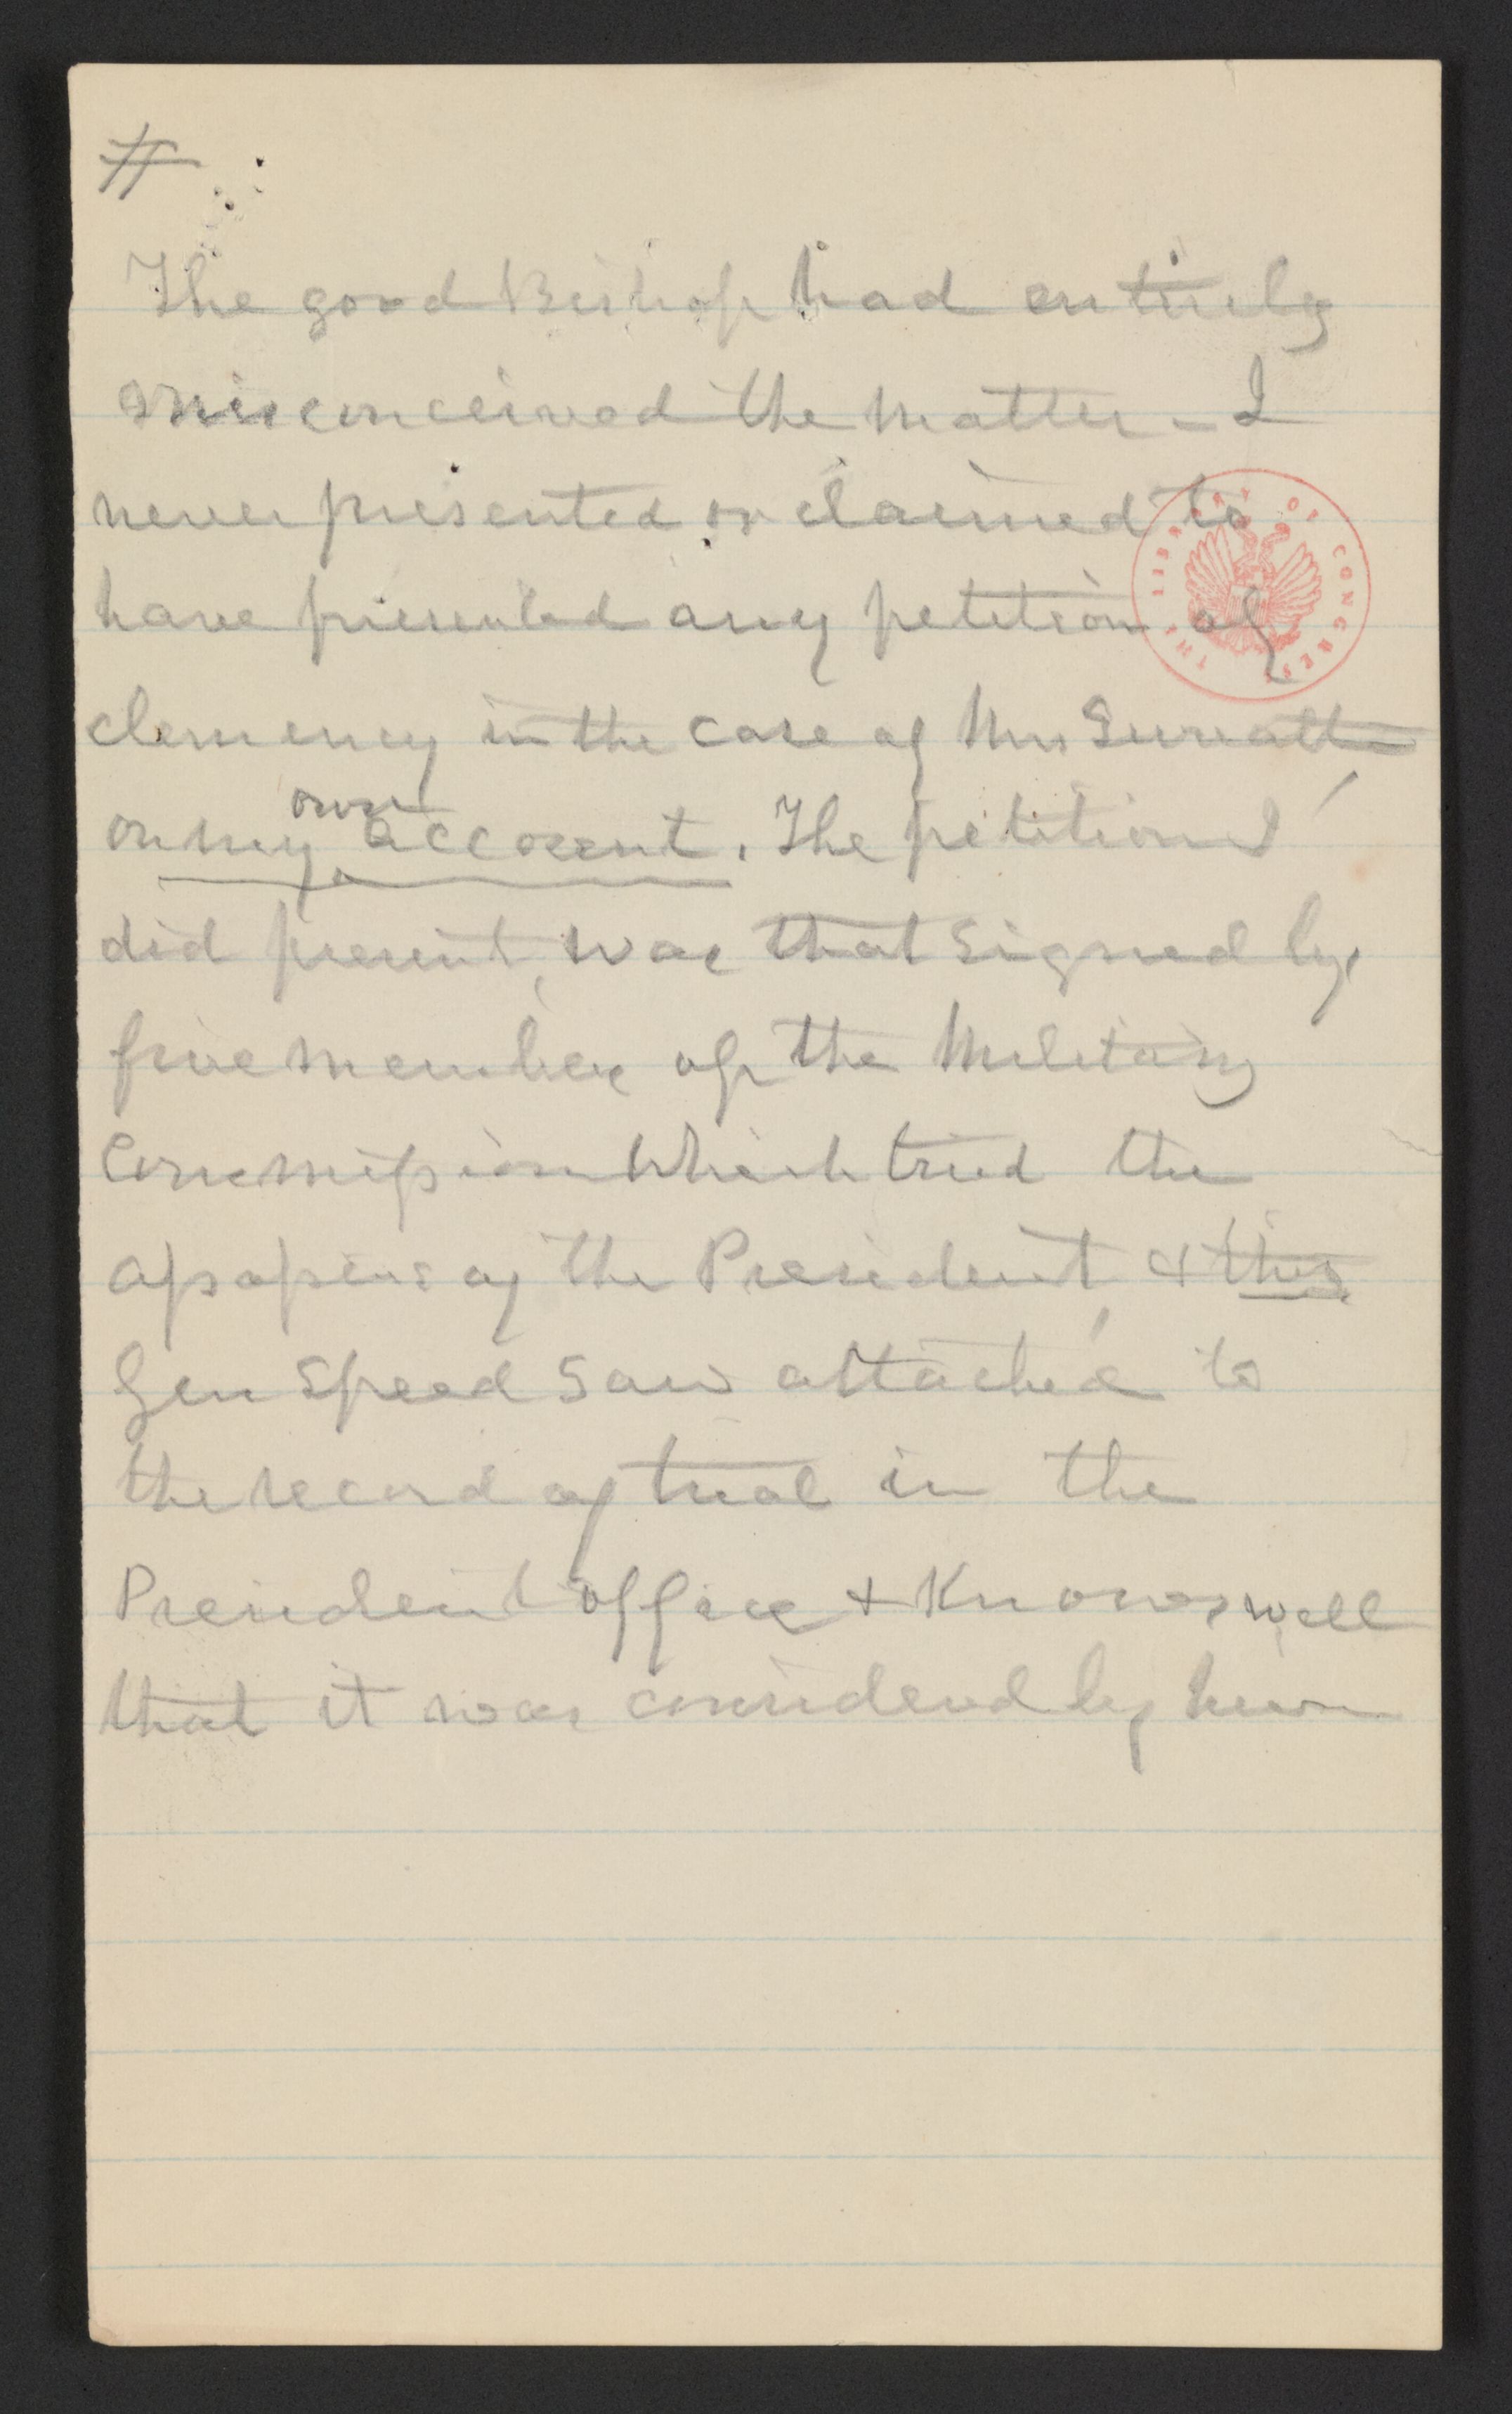 #
The good Bishop had entirely
misconceived the matter - I
never presented or claimed to
have presented any petition of
clemency in the case of Mrs Surratt
on my own account. The petition I
did present, was that signed by
five members of the Military
Commission which tried the
assassins of the President, & this
Gen Speed saw attached to
the record of trial in the
President office & knows well
that it was considered by him
THE LIBRARY OF CONGRESS